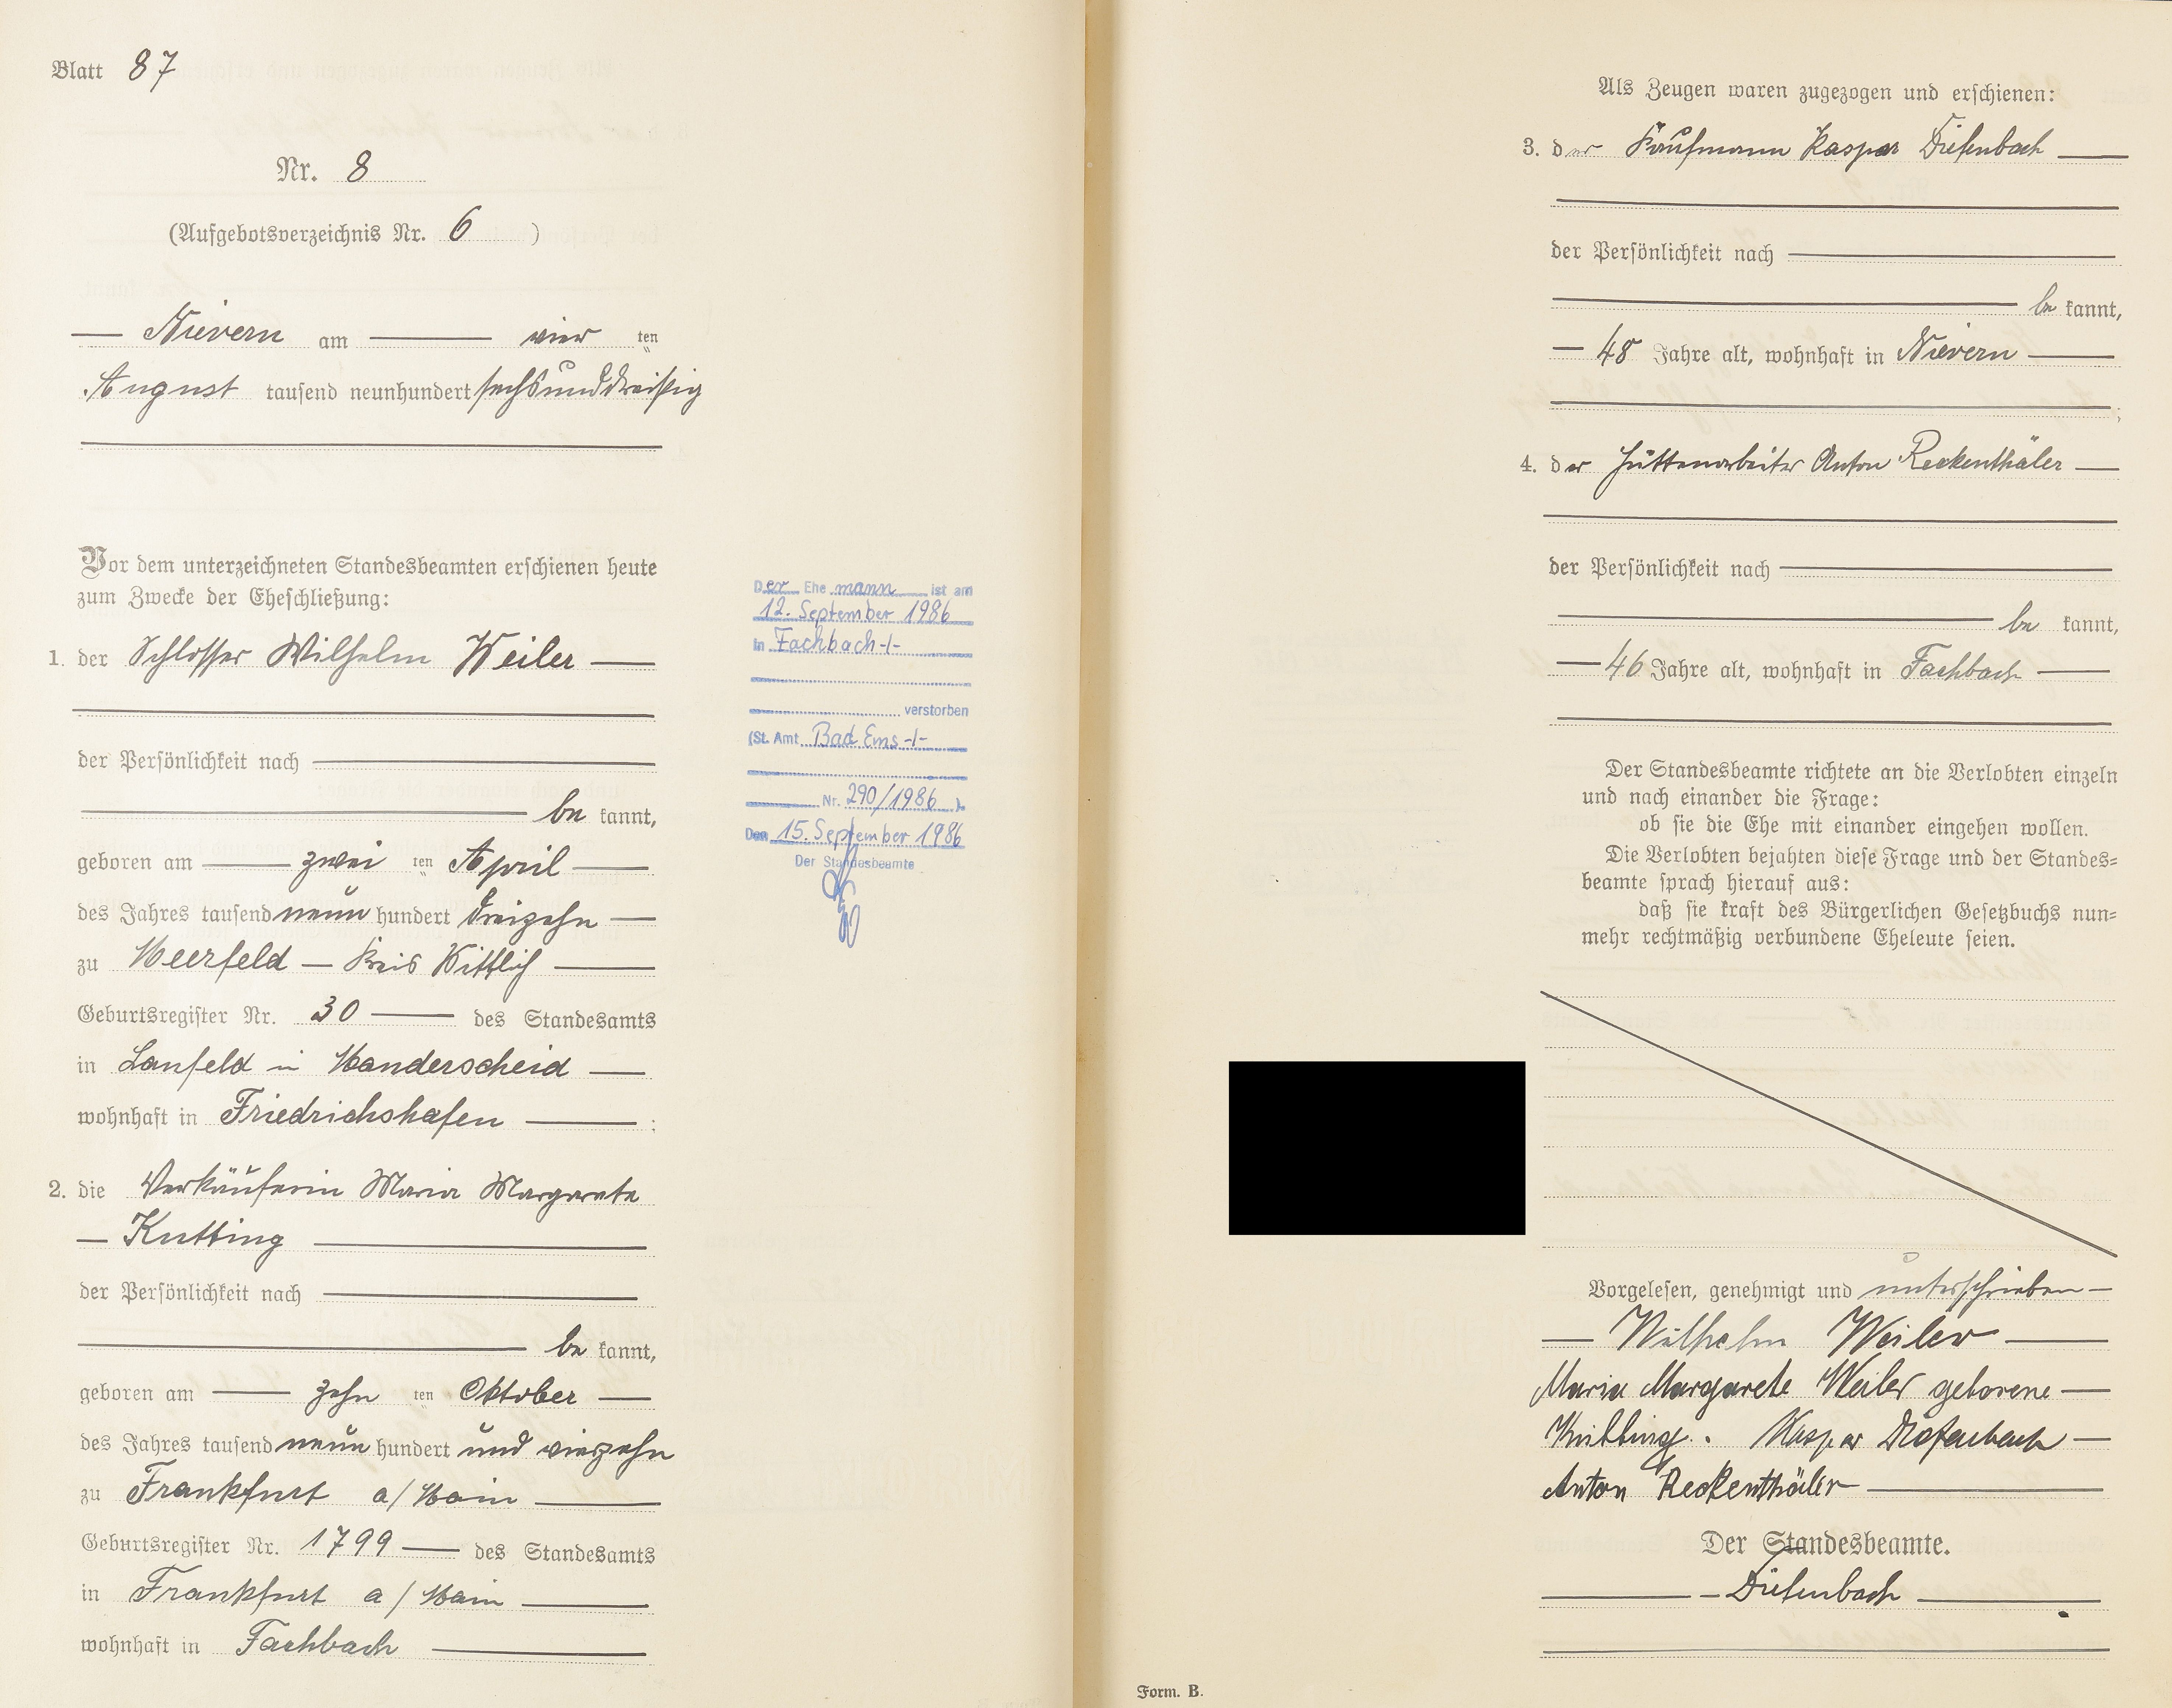 Blatt 87
Nr. 8
(Aufgebotsverzeichnis Nr. 6)
Nievern am vier ten
August tausend neunhundert sechsunddreißig
Vor dem unterzeichneten Standesbeamten erschienen heute
zum Zwecke der Eheschließung:
1. der Schlosser Wilhelm Weiler
der Persönlichkeit nach
be kannt,
geboren am zwei ten April
des Jahres tausend neun hundert dreizehn
zu Meerfeld – Kreis Wittlich
Geburtsregister Nr. 30 des Standesamts
in Lanfeld in Manderscheid
wohnhaft in Friedrichshafen ;
2. die Verkäuferin Maria Margarete
Knitting
der Persönlichkeit nach
be kannt,
geboren am zehn ten Oktober
des Jahres tausend neun hundert und vierzehn
zu Frankfurt a/Main
Geburtsregister Nr. 1799 des Standesamts
in Frankfurt a/Main
wohnhaft in Fachbach
Der Ehe mann ist am
12. September 1986
in Fachbach -/-
verstorben
(St. Amt Bad Ems -/-
Nr. 290/1986 ).
Den 15. September 1986
Der Standesbeamte
Als Zeugen waren zugezogen und erschienen:
3. der Kaufmann Kaspar Diefenbach
der Persönlichkeit nach
be kannt,
48 Jahre alt, wohnhaft in Nievern
;
4. der Hüttenarbeiter Anton Reckenthäler
der Persönlichkeit nach
be kannt,
46 Jahre alt, wohnhaft in Fachbach
Der Standesbeamte richtete an die Verlobten einzeln
und nach einander die Frage:
ob sie die Ehe mit einander eingehen wollen.
Die Verlobten bejahten diese Frage und der Standes=
beamte sprach hierauf aus:
daß sie kraft des Bürgerlichen Gesetzbuchs nun=
mehr rechtmäßig verbundene Eheleute seien.
Vorgelesen, genehmigt und unterschrieben
Wilhelm Weiler
Maria Margarete Weiler geborene
Knitting. Kaspar Diefenbach
Anton Reckenthäler
Der Standesbeamte.
Diefenbach
Form. B.